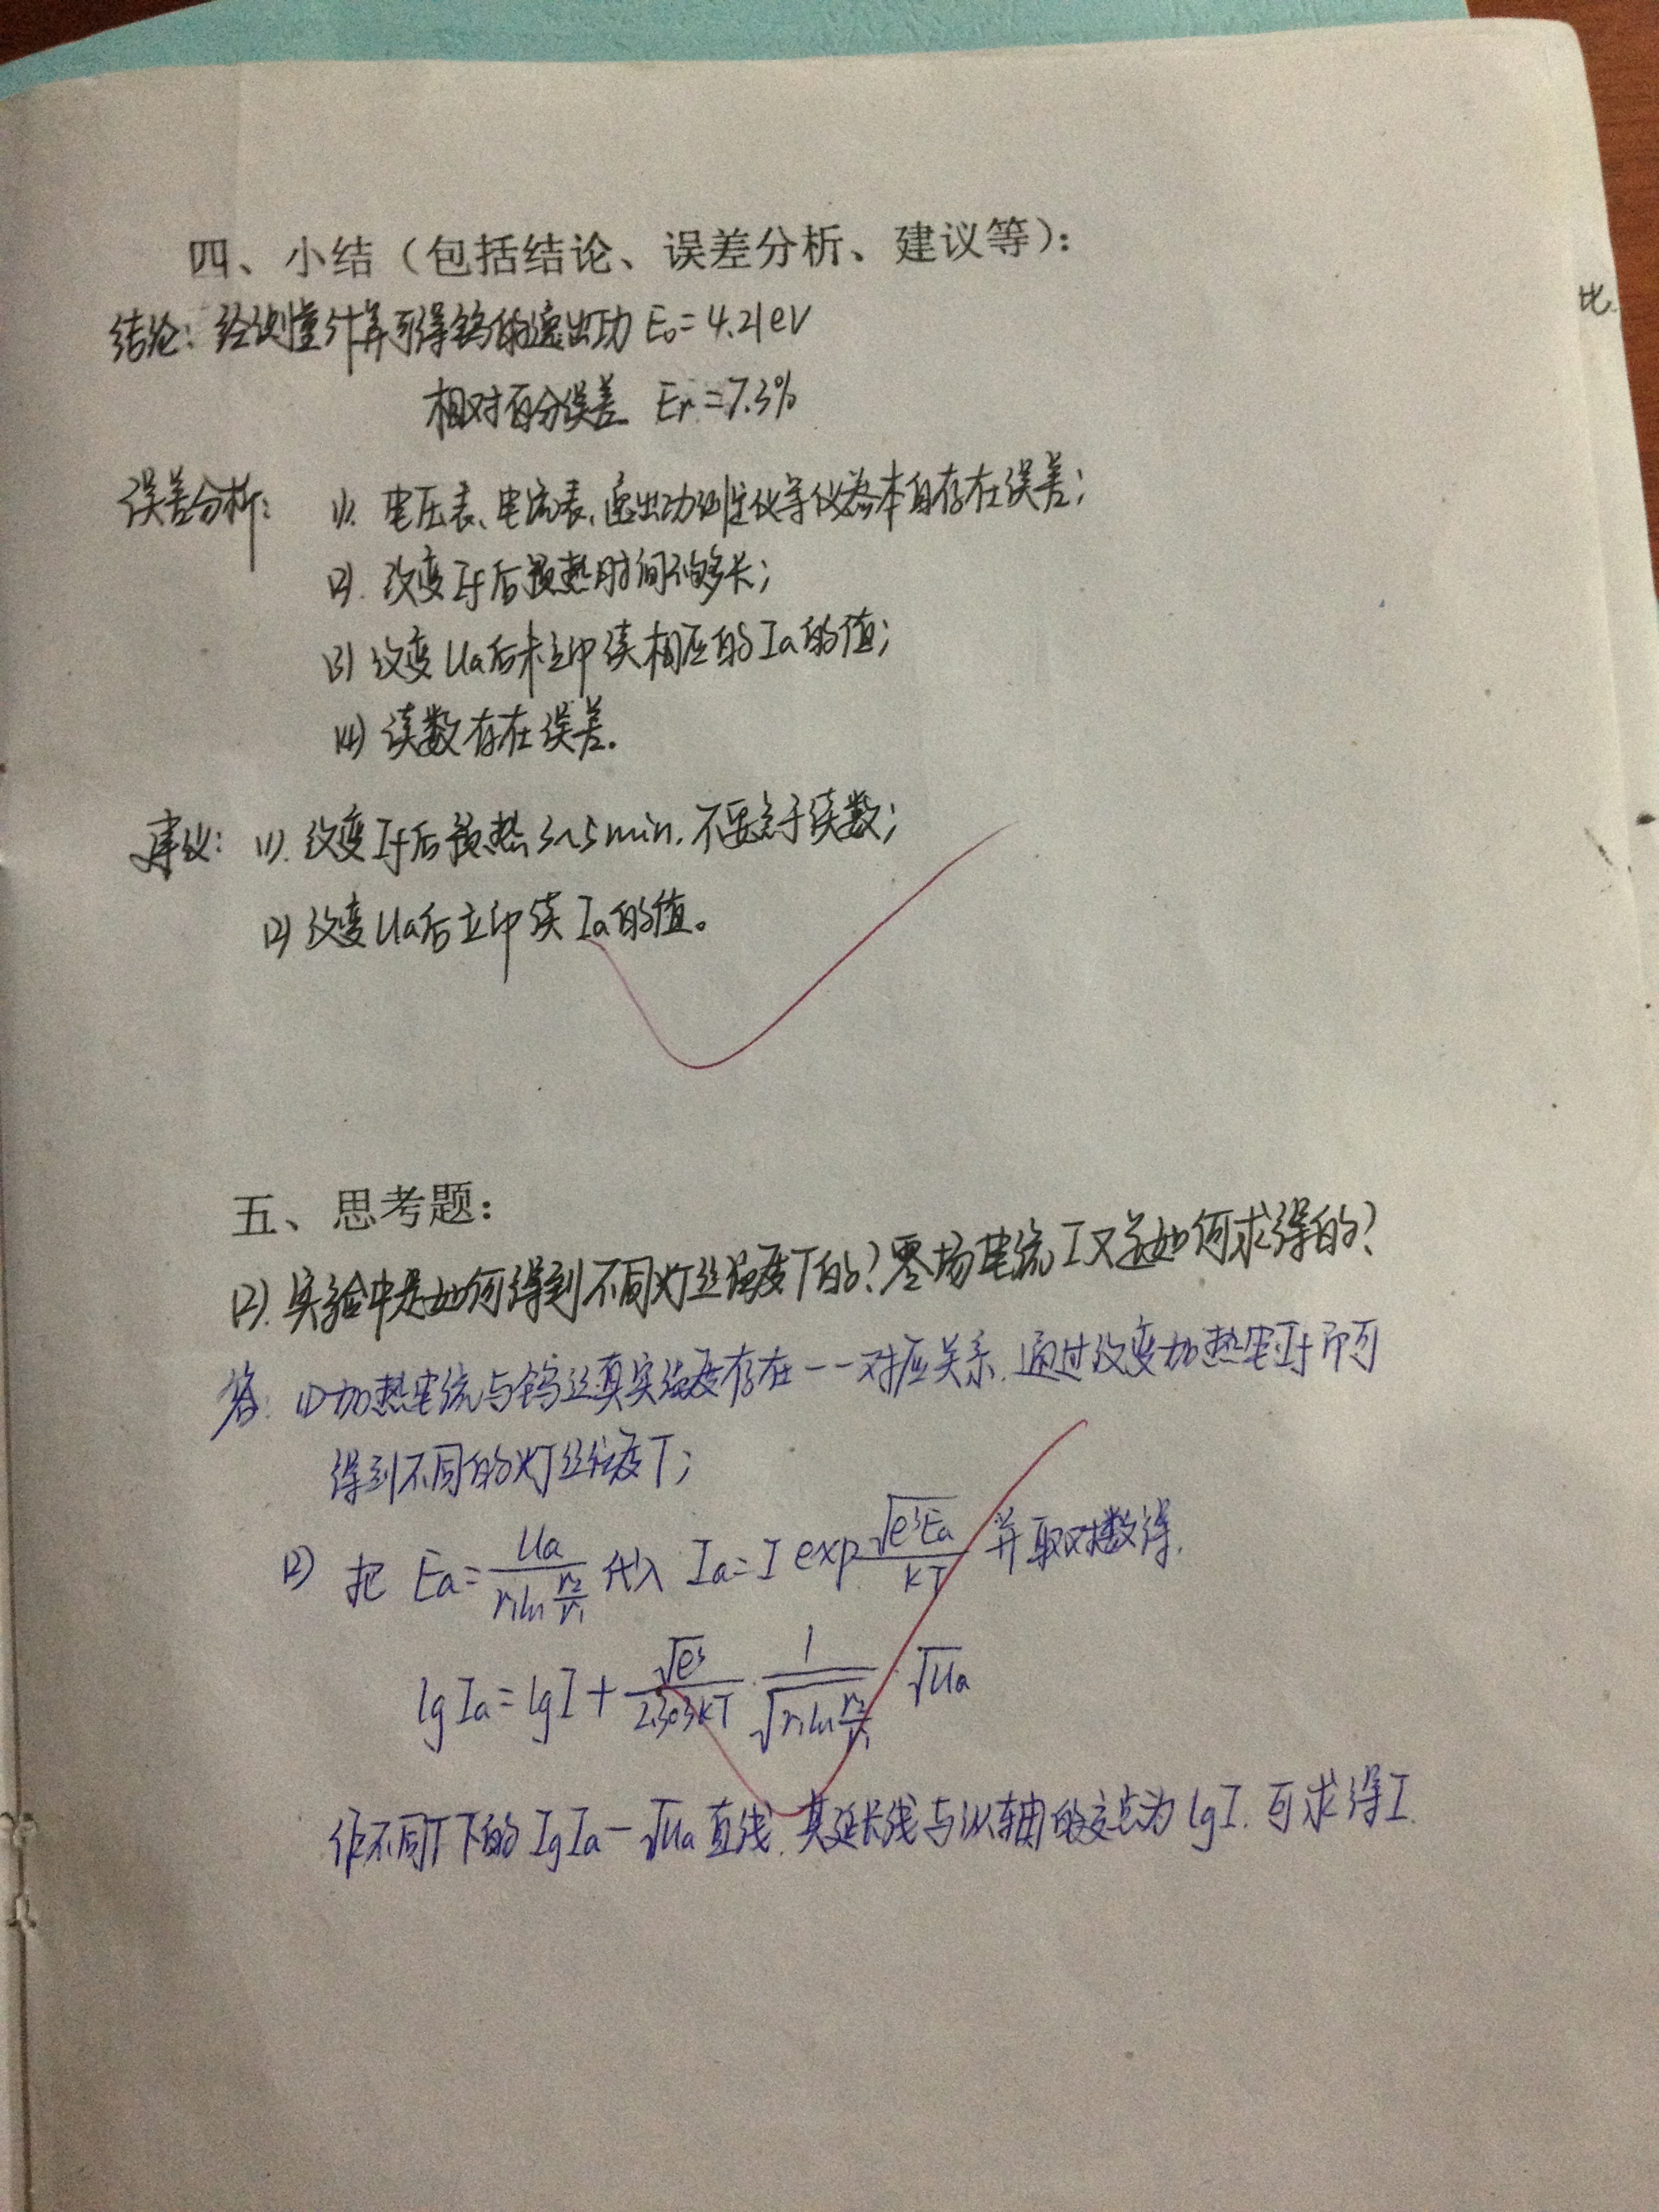 四、小结（包括结论、误差分析、建议等）：
比
结论：经测量计算可得钨的逸出功 E₀=4.21eV
相对百分误差 Er=7.3%
误差分析： (1). 电压表、电流表、逸出功测定仪等仪器本身存在误差；
(2). 改变If后预热时间不够长；
(3) 改变Ua后未立即读相应的Ia的值；
(4) 读数存在误差.
建议： (1). 改变If后预热3~5min. 不要急于读数；
(2) 改变Ua后立即读Ia的值。
五、思考题：
(2). 实验中是如何得到不同灯丝温度T的？零场电流I又是如何求得的？
答： (1)加热电流与钨丝真实温度存在一一对应关系. 通过改变加热电流If即可
得到不同的灯丝温度T；
(2) 把 Ea=Ua/(r₁ln(r₂/r₁)) 代入 Ia=I exp √(e³Ea)/(kT) 并取对数得.
lgIa=lgI+√e³/(2.303kT)·1/√(r₁ln(r₂/r₁))·√Ua
作不同T下的lgIa-√Ua直线. 其延长线与纵轴的交点为lgI. 可求得I.